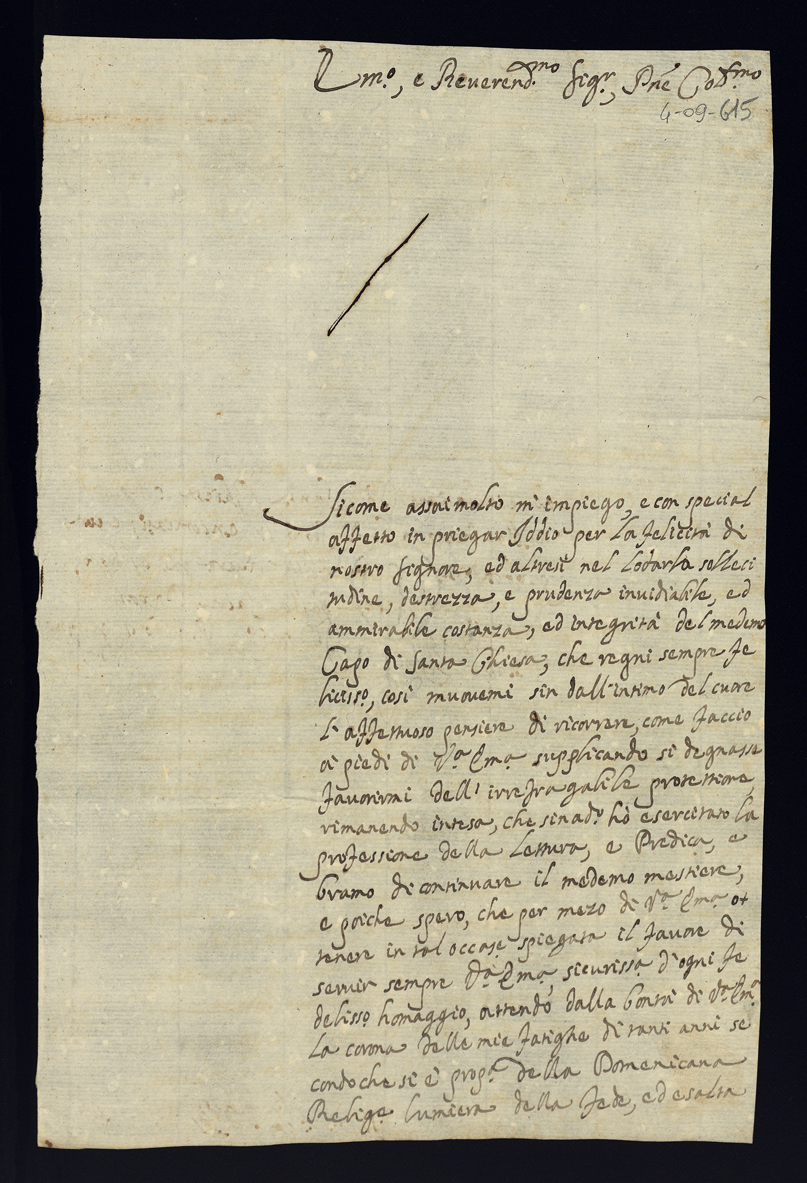 Em.º, e Reverend.mo Sig.r, Pne Col.mo
4-09-615
Sicome assai molto m'impiego, e con special
affetto in priegar Iddio per la felicità di
nostro Signore, ed altresi nel lodarla solleci
tudine, destrezza, e prudenza invidiabile, ed
ammirabile costanza, ed integrità del medemo
Capo di Santa Chiesa, che regni sempre fe
liciss.º, così muovemi sin dall'intimo del cuore
l'affettuoso pensiere di ricorrere, come faccio
a' piedi di V.a Em.a supplicando si degnasse
favorirmi dell'irrefragabile protettione,
rimanendo intesa, che sin ad.º hò esercitato la
professione della Lettura, e Predica, e
bramo di continuare il medemo mestiere,
e poiche spero, che per mezo di V.a Em.a ot
tenere in tal occas.e spiegata il favore di
servir sempre V.a Em.a, sicuriss.a d'ogni fe
deliss.º homaggio, attendo dalla bontà di V.a Em.a
la corona delle mie fatighe di tanti anni se
condo che si è prop.a della Domenicana
Relig.e lumiera della fede, ed esalta